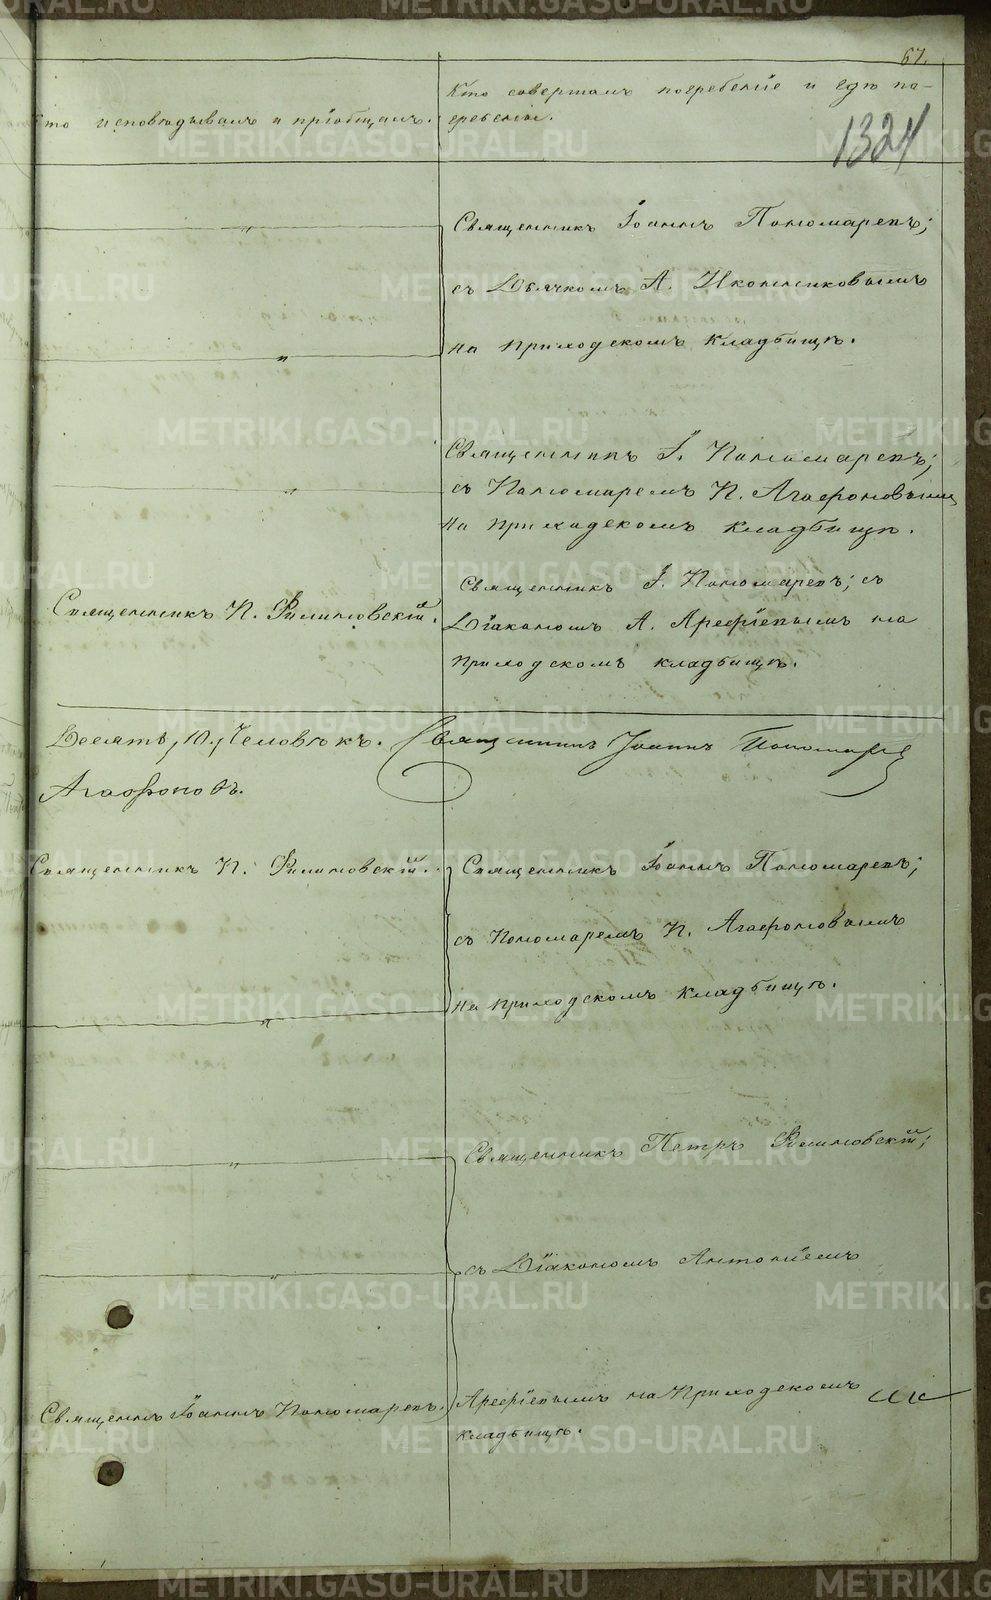 67.
Кто исповѣдывалъ и пріобщалъ.
Кто совершалъ погребеніе и гдѣ по-
гребены.
1324
„
Священникъ Іоаннъ Пономаревъ;
съ Дьячкомъ А. Иконниковымъ
на приходскомъ кладбищѣ.
„
Священникъ І. Пономаревъ;
„
съ Пономаремъ П. Агафоновымъ
на приходскомъ кладбищѣ.
Священникъ П. Филиповскій.
Священникъ І. Пономаревъ; съ
Діакономъ А. Арефіевымъ на
приходскомъ кладбищѣ.
Десять, 10, Человѣкъ. Священникъ Іоаннъ Пономаревъ
Агафоновъ.
Священникъ П. Филиповскій.
Священникъ Іоаннъ Пономаревъ;
съ Пономаремъ П. Агафоновымъ
на приходскомъ кладбищѣ.
„
„
Священникъ Петръ Филиповскій;
съ Діакономъ Антоніемъ
„
Священнъ Іоаннъ Пономаревъ.
Арефіевымъ на Приходскомъ
кладбищѣ.
METRIKI.GASO-URAL.RU